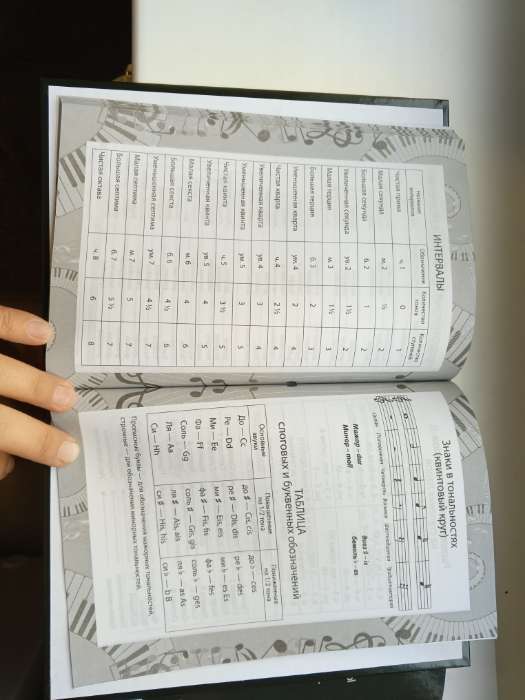 ИНТЕРВАЛЫ
Название интервала Обозначение Количество тонов Количество ступеней
Чистая прима ч. 1 0 1
Малая секунда м. 2 ½ 2
Большая секунда б. 2 1 2
Увеличенная секунда ув. 2 1½ 2
Малая терция м. 3 1½ 3
Большая терция б. 3 2 3
Уменьшенная кварта ум. 4 2 4
Чистая кварта ч. 4 2 ½ 4
Увеличенная кварта ув. 4 3 4
Уменьшенная квинта ум. 5 3 5
Чистая квинта ч. 5 3 ½ 5
Увеличенная квинта ув. 5 4 5
Малая секста м. 6 4 6
Большая секста б. 6 4 ½ 6
Уменьшенная септима ум. 7 4 ½ 7
Малая септима м. 7 5 7
Большая септима б. 7 5 ½ 7
Чистая октава ч. 8 6 8
Знаки в тональностях
(квинтовый круг)
Мажор – dur
Минор – moll
Диез ♯ – is
Бемоль ♭ – es
ТАБЛИЦА
слоговых и буквенных обозначений
Основные звуки Повышенные на 1/2 тона Пониженные на 1/2 тона
До — Cc до ♯ — Cis, cis до ♭ — ces
Ре — Dd ре ♯ — Dis, dis ре ♭ — des
Ми — Ee ми ♯ — Eis, eis ми ♭ — es Es
Фа — Ff фа ♯ — Fis, fis фа ♭ — fes
Соль — Gg соль ♯ — Gis, gis соль ♭ — ges
Ля — Aa ля ♯ — Ais, ais ля ♭ — as As
Си — Hh си ♯ — His, his си ♭ — b B
Прописные буквы — для обозначения мажорных тональностей,
строчные — для обозначения минорных тональностей.